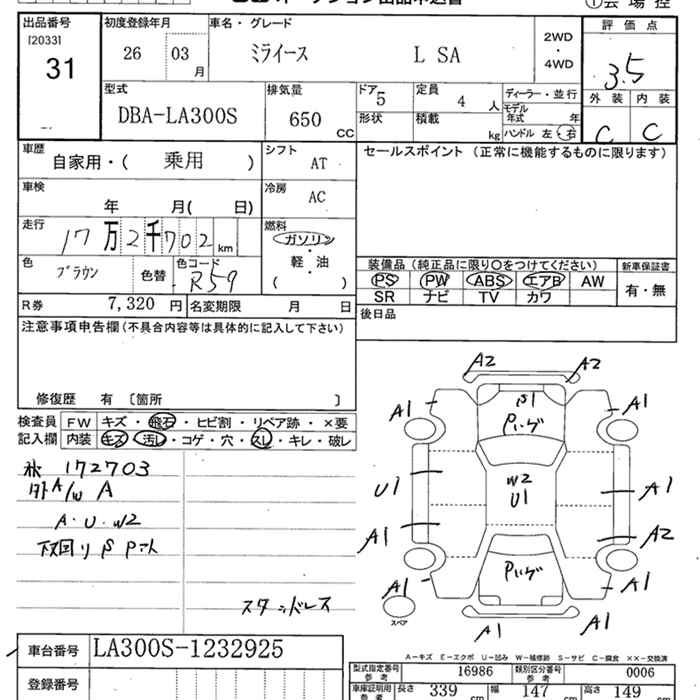 出品番号 初度登録年月 車名・グレード 評価点
[2033]
31 26 03 月 ミライース L SA 2WD・4WD 3.5
外装 内装
C C
型式 排気量 ドア 定員 ディーラー・並行
DBA-LA300S 650 CC 5 4 人 モデル年式 年
形状 積載 kg ハンドル 左・右
車歴 シフト セールスポイント (正常に機能するものに限ります)
自家用・( 乗用 ) AT
車検 冷房
年 月( 日) AC
走行 燃料
17万2千702 km ガソリン
軽・油
( )
色 色コード 装備品 (純正品に限り○をつけてください) 新車保証書
ブラウン 色替 R59 PS PW ABS エアB AW 有・無
SR ナビ TV カワ
R券 7,320 円 名変期限 月 日 後日品
注意事項申告欄 (不具合内容等は具体的に記入して下さい)
修復歴 有 〔箇所 〕
検査員 FW キズ・飛石・ヒビ割・リペア跡・×要
記入欄 内装 キズ・汚レ・コゲ・穴・スレ・キレ・破レ
172703
外A/W A
A・U・W2
下回りSPート
スタッドレス
A2 A2
A1 S1 A1
Pハゲ
U1 W2 U1 A1
A1 A2
A1 Pハゲ A1
スペア
A1 A1
A-キズ E-エクボ U-凹み W-補修跡 S-サビ C-腐食 ××-交換済
車台番号 LA300S-1232925
登録番号
型式指定番号 参考 16986 類別区分番号 参考 0006
車庫証明用 参考 長さ 339 cm 幅 147 cm 高さ 149 cm